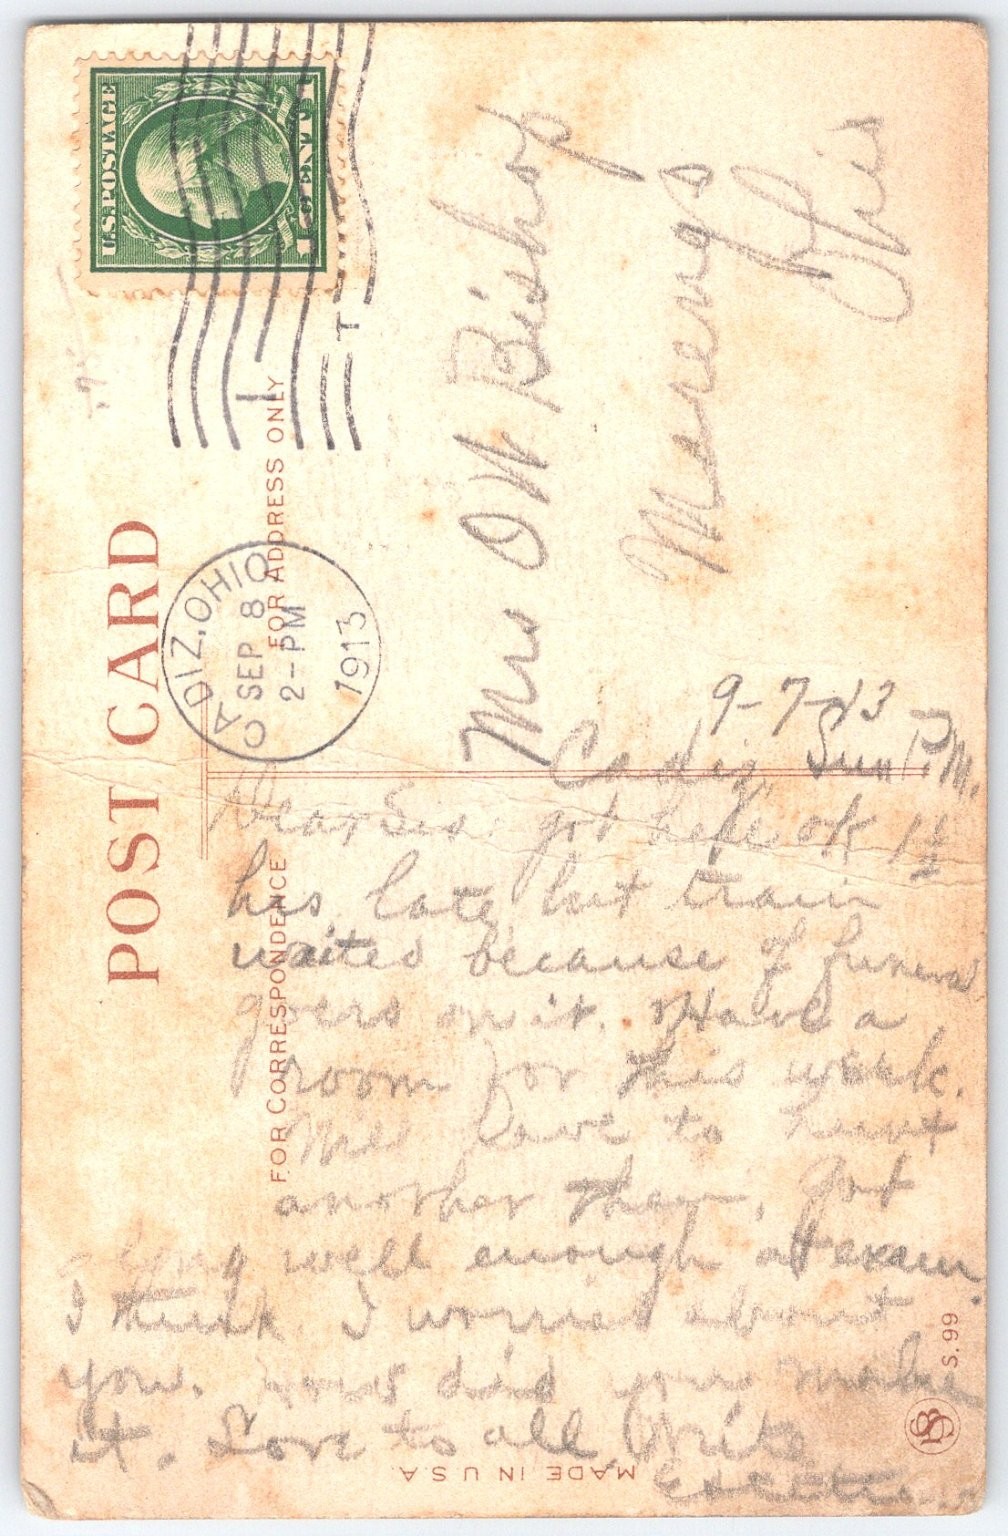 U.S. POSTAGE
1 CENT 1
POST CARD
CADIZ, OHIO
SEP 8
2-PM
1913
FOR ADDRESS ONLY
FOR CORRESPONDENCE
Mrs O W Bishop
Ohio
9-7-13
Cadiz, Sun P.M.
Dear Sis: got here ok 1 1/2
hrs late but train
waited because of funeral
goers on it. Have a
room for this week.
Will have to hunt
another then. Got
along well enough at exam
I think. I worried about
you. did you make
it. Love to all Write
MADE IN U.S.A.
S. 99
SB